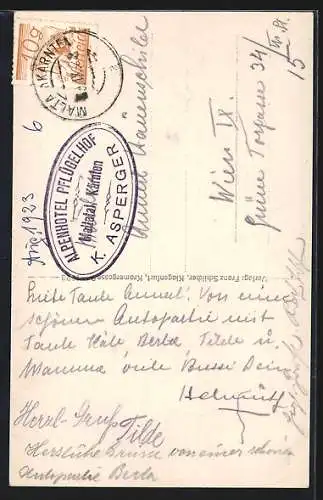 10g
MALTA (KÄRNTEN)
ALPENHOTEL PFLÜGELHOF
Maltatal, Kärnten
K. ASPERGER
Aug 1923
6
Wien IX.
Grüne Torgasse 34/
15
Verlag: Franz Schilcher, Klagenfurt, Kramergasse
Liebe Tante Annerl! Von einer
schönen Autopartie mit
Tante Käte Berta Tilde u.
Mamma viele Bussi Dein
Helmuth
Herzl. Gruß Tilde
Herzliche Grüsse von einer schönen
Autopartie Berta